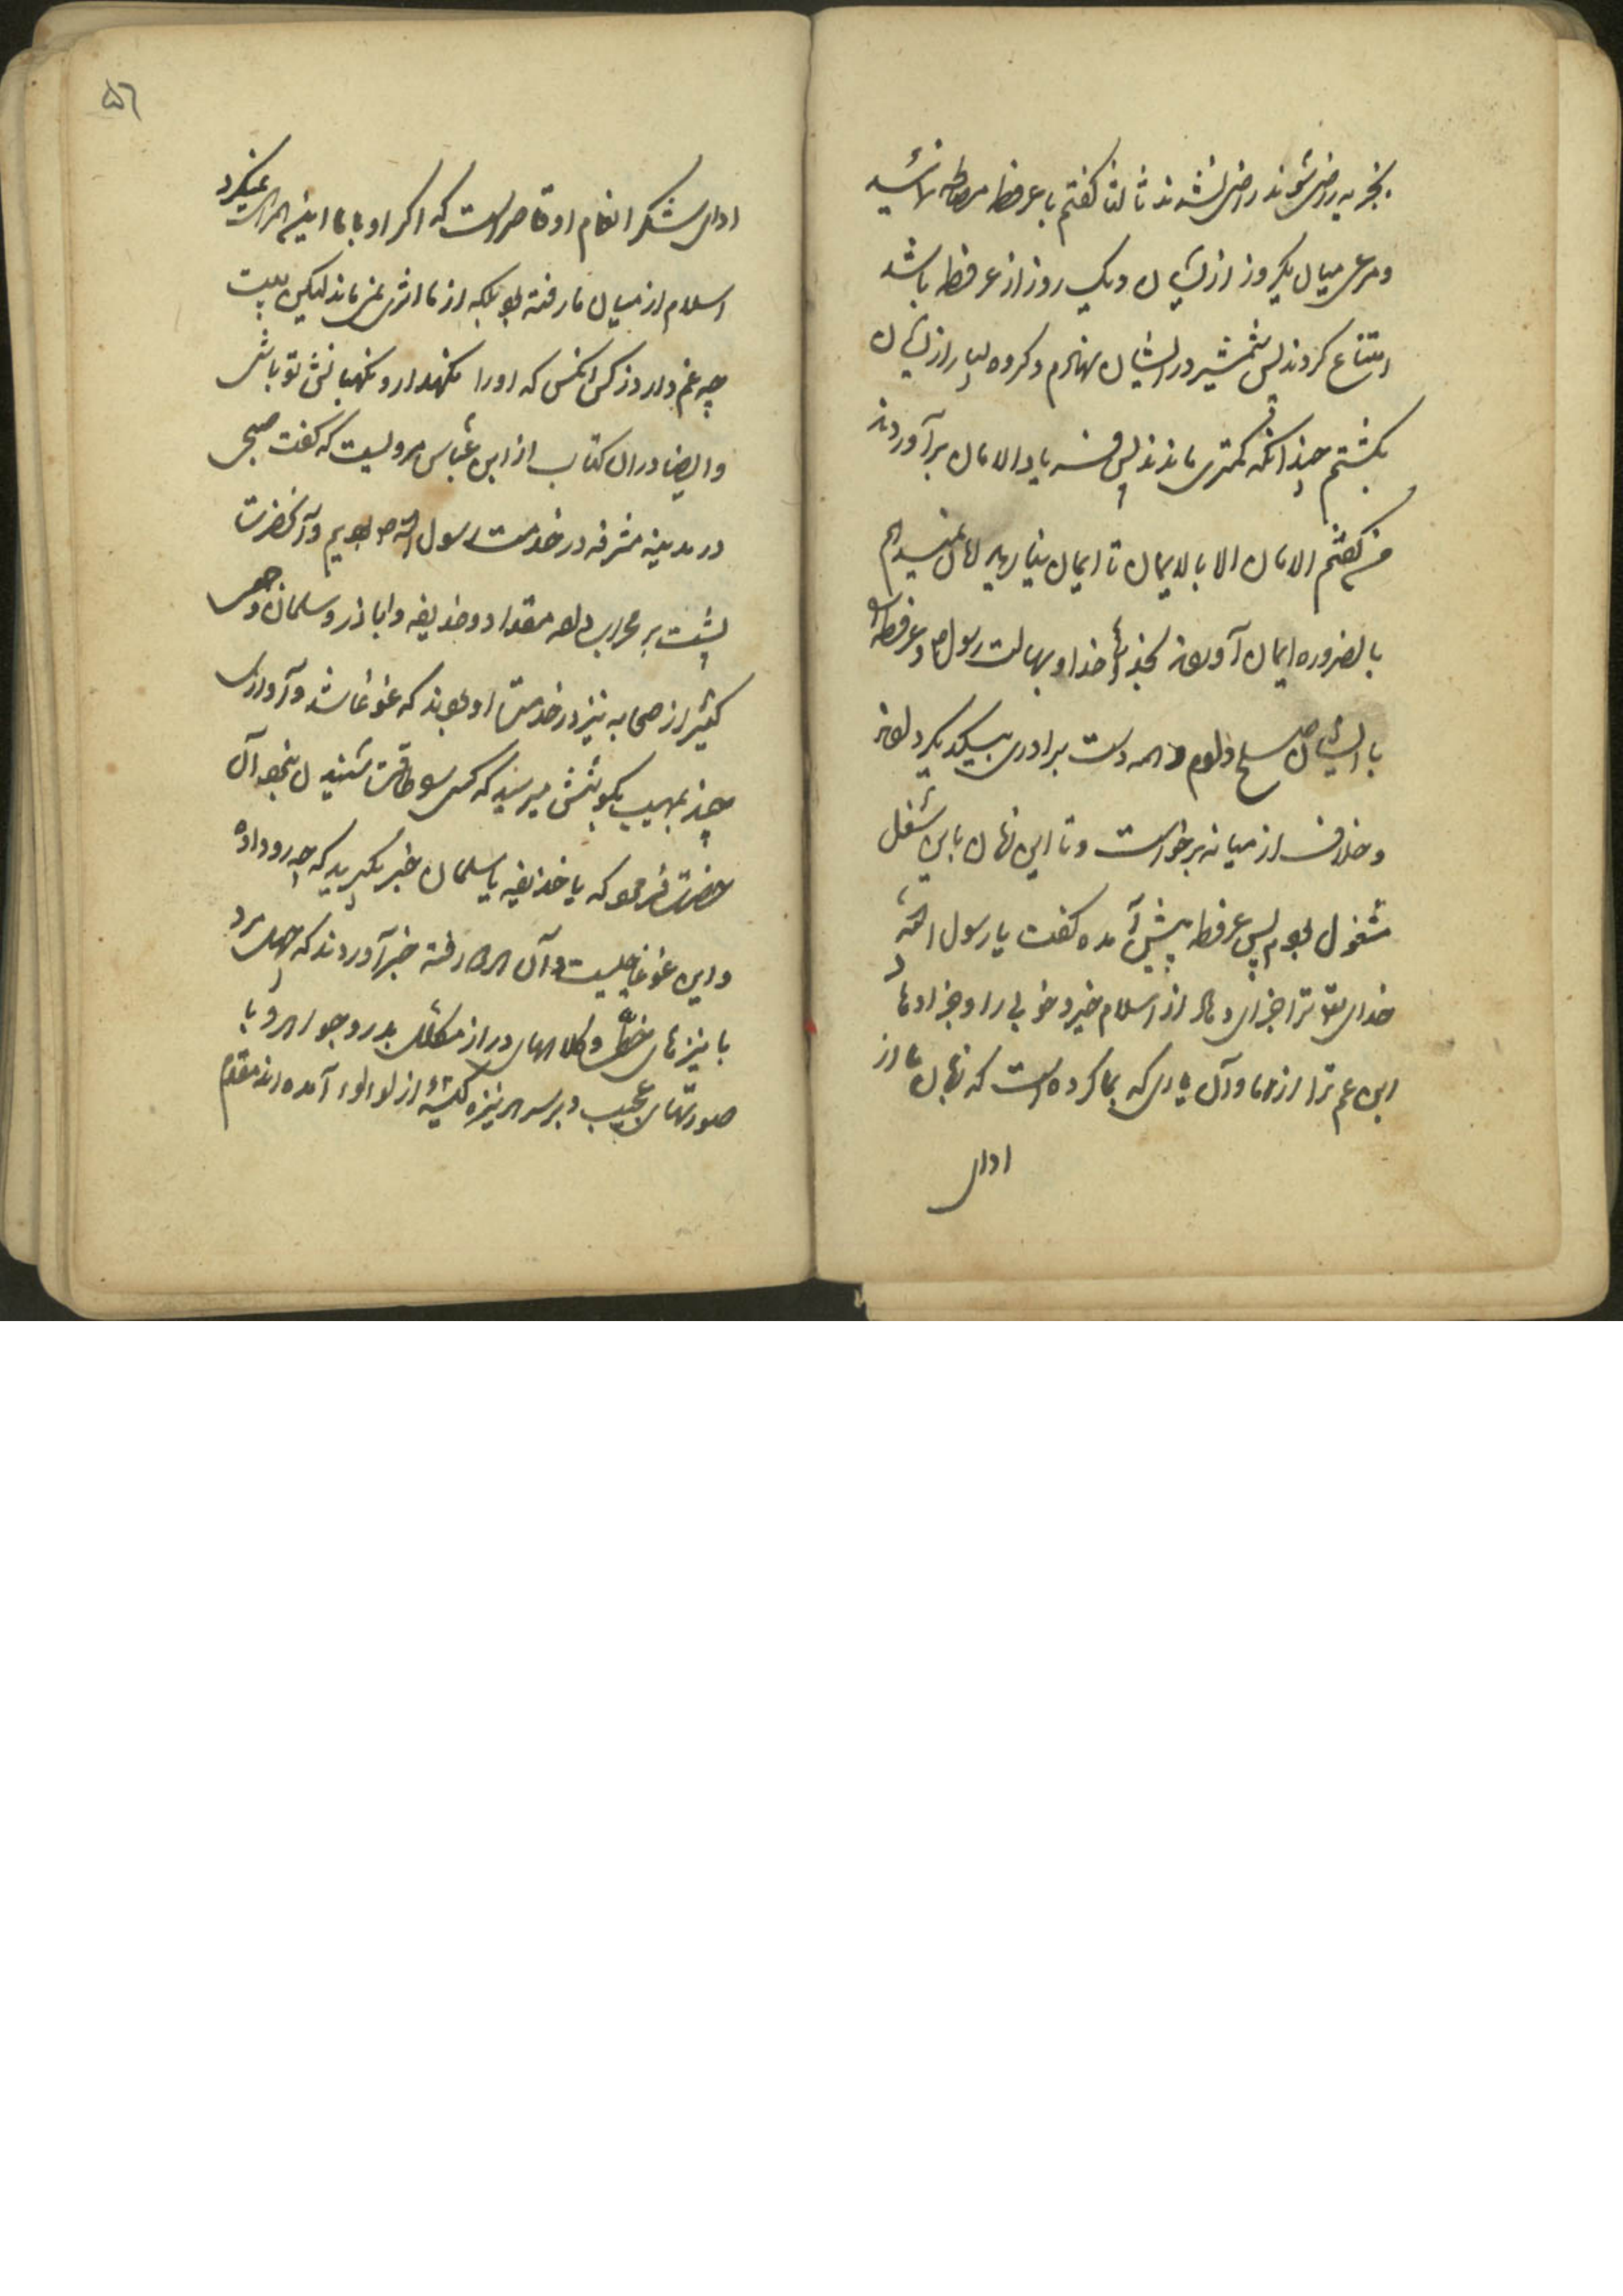 بجزیه راضی شوند راضی نشدند ثالثا گفتم با عرفطه مصالحه نمائید
و مرعی میان یکروز از ایشان و یک روز از عرفطه باشد
امتناع کردند پس شمشیر در ایشان نهادم و گروه بسیار از ایشان
بکشتم چندانکه کمتری ماندند پس فریاد الامان برآوردند
من گفتم الامان الا بالایمان تا ایمان نیارید امان نمیدهم
بالضروره ایمان آوردند بخدائی خدا و برسالت رسول و عرفطه را
با ایشان صلح دادم و همه دست برادری بیکدیگر دادند
و خلاف از میانه برخواست و تا این زمان باین شغل
مشغول بودم پس عرفطه پیش آمده گفت یا رسول الله
خدای تعالی ترا جزای دهاد از اسلام خیر و خوبی را و جزا دهاد
ابن عم ترا از ما و آن یاری که بما کرده است که زبان ما از
ادای
٥٦
ادای شکر انعام او قاصر است که اگر او با ما اینهمراهی نمیکرد
اسلام از میان ما رفته بود بلکه از ما اثری نمی ماند لیکن بیت
چه غم دارد ز کس آنکس که او را نگهدار و نگهبانش تو باشی
و ایضا در آن کتاب از ابن عباس مرویست که گفت صبحی
در مدینه مشرفه در خدمت رسول الله ص بودیم و آنحضرت
پشت بر محراب داده مقداد و حذیفه و اباذر و سلمان و جمعی
کثیر از صحابه نیز در خدمت او بودند که غوغا شد و آوازی
چند مهیب بگوشش میرسید که کس را طاقت شنیدن نبود آن
حضرت فرمود که یا حذیفه یا سلمان خبر بگیرید که چه روداده
و این غوغا چیست و آن هر دو رفته خبر آوردند که چهل مرد
با نیزهای خطی و کلاههای دراز مکلل بدر و جواهر و با
صورتهای عجیب و بر سر هر نیزه گیشهٔ از لوالوء آمده اند مقدم